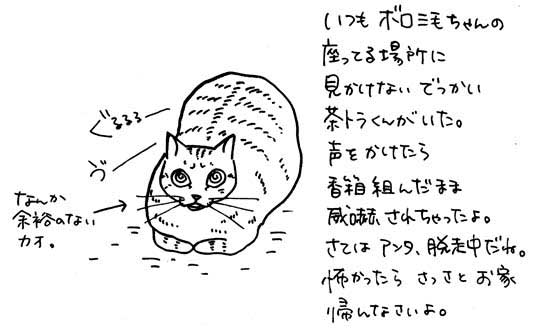 いつも ボロ三毛ちゃんの
座ってる場所に
見かけない でっかい
茶トラくんがいた。
声をかけたら
香箱組んだまま
威嚇されちゃったよ。
さては アンタ、脱走中だね。
怖かったら さっさと お家
帰んなさいよ。
ぐるるる
ヴ
なんか
余裕のない
カオ。